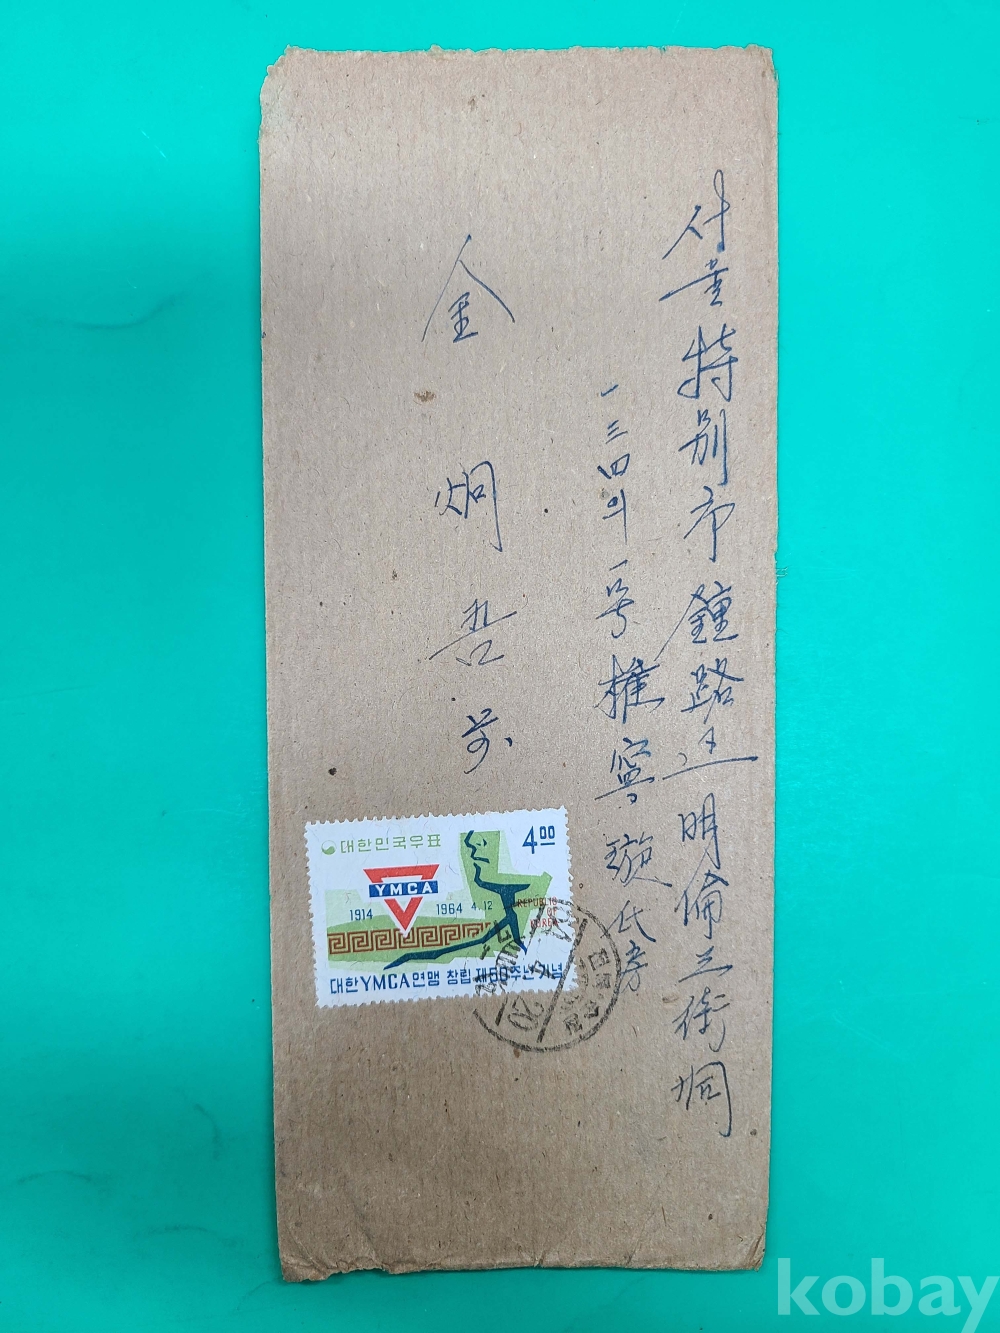 서울特別市鍾路區明倫三街洞
一三四의 一号 權寧璇氏房
金炯吉 前
대한민국우표 4.00
YMCA
1914 1964 4.12
REPUBLIC OF KOREA
대한YMCA연맹 창립 제50주년기념
kobay